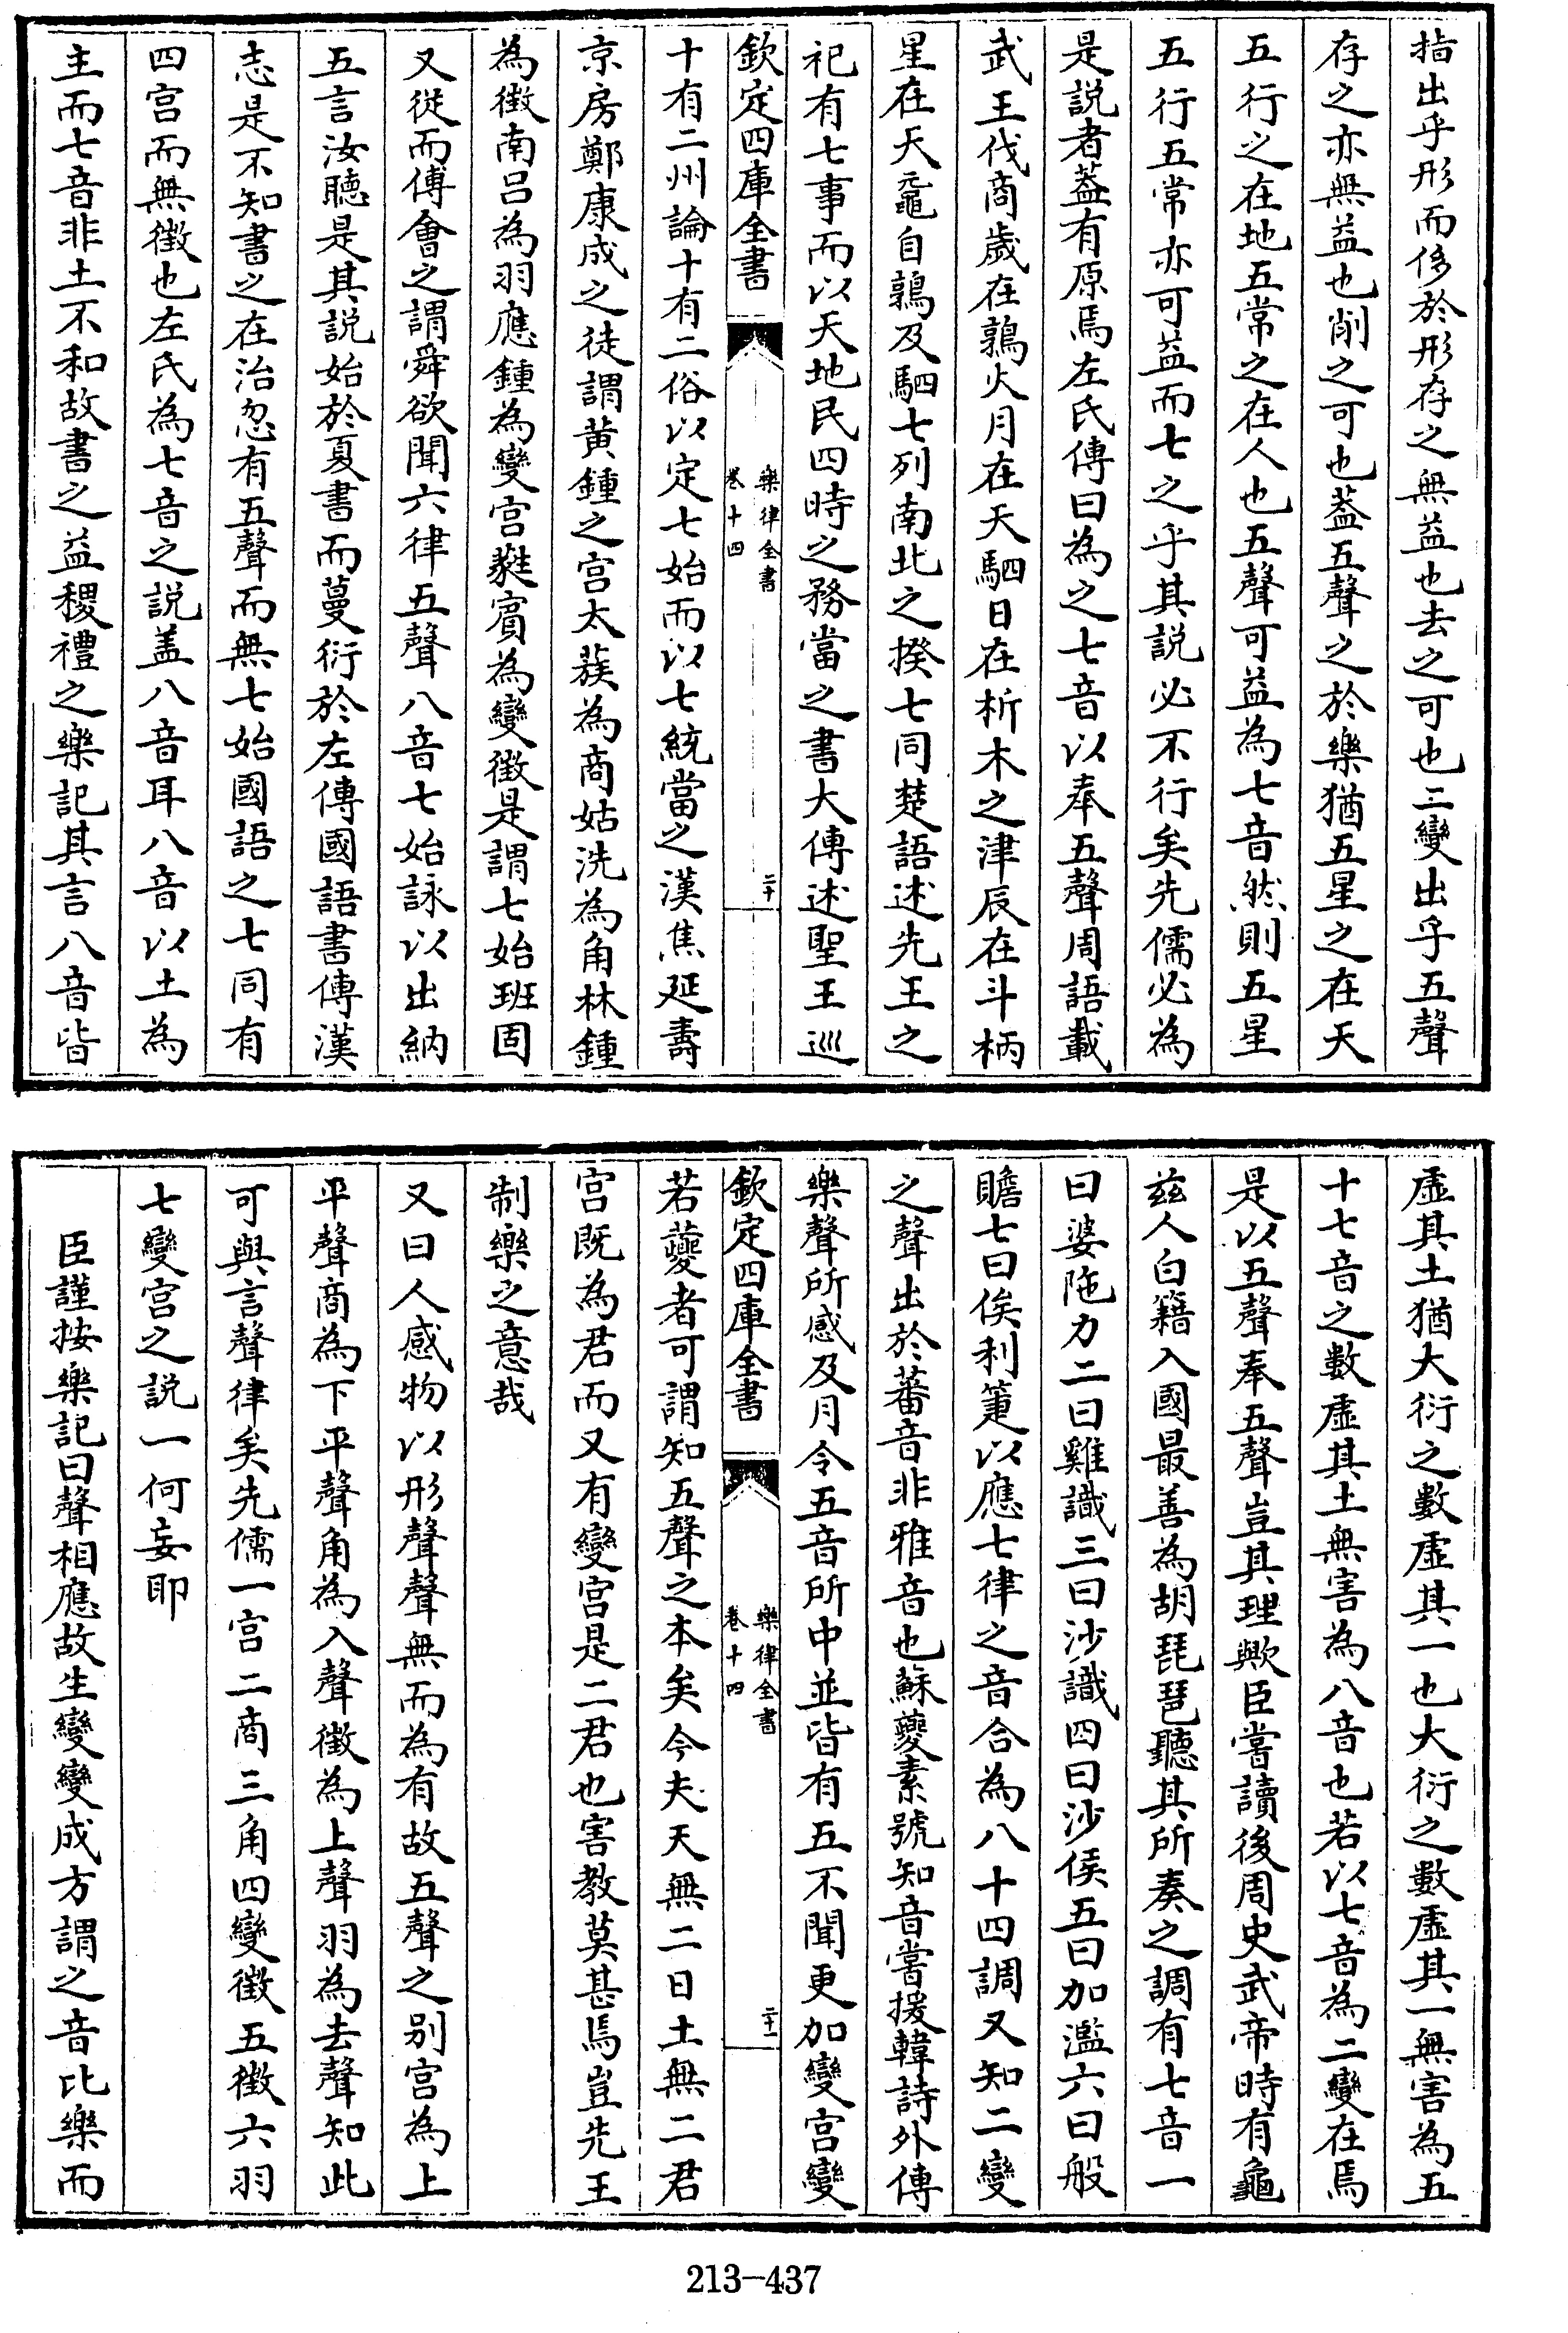 指出乎形而係於形存之無益也去之可也二變出乎五聲
存之亦無益也削之可也葢五聲之於樂猶五星之在天
五行之在地五常之在人也五聲可益為七音然則五星
五行五常亦可益而七之乎其説必不行矣先儒必為
是説者葢有原焉左氏傳曰為之七音以奉五聲周語載
武王伐商歲在鶉火月在天駟日在析木之津辰在斗柄
星在天黿自鶉及駟七列南北之揆七同楚語述先王之
祀有七事而以天地民四時之務當之書大傳述聖王巡
欽定四庫全書
樂律全書
卷十四
二十
十有二州論十有二俗以定七始而以七統當之漢焦延壽
京房鄭康成之徒謂黄鍾之宫太蔟為商姑洗為角林鍾
為徵南呂為羽應鍾為變宫蕤賓為變徵是謂七始班固
又從而傅會之謂舜欲聞六律五聲八音七始詠以出納
五言汝聽是其説始於夏書而蔓衍於左傳國語書傳漢
志是不知書之在治忽有五聲而無七始國語之七同有
四宫而無徵也左氏為七音之説盖八音耳八音以土為
主而七音非土不和故書之益稷禮之樂記其言八音皆
虚其土猶大衍之數虚其一也大衍之數虚其一無害為五
十七音之數虚其土無害為八音也若以七音為二變在焉
是以五聲奉五聲豈其理歟臣嘗讀後周史武帝時有龜
兹人白籍入國最善為胡琵琶聽其所奏之調有七音一
曰婆陁力二曰雞識三曰沙識四曰沙侯五曰加濫六曰般
贍七曰俟利箑以應七律之音合為八十四調又知二變
之聲出於蕃音非雅音也蘇夔素號知音嘗援韓詩外傳
樂聲所感及月令五音所中並皆有五不聞更加變宫變
欽定四庫全書
樂律全書
卷十四
二十一
若夔者可謂知五聲之本矣今夫天無二日土無二君
宫既為君而又有變宫是二君也害教莫甚焉豈先王
制樂之意哉
又曰人感物以形聲聲無而為有故五聲之别宫為上
平聲商為下平聲角為入聲徵為上聲羽為去聲知此
可與言聲律矣先儒一宫二商三角四變徵五徵六羽
七變宫之説一何妄耶
臣謹按樂記曰聲相應故生變變成方謂之音比樂而
213-437